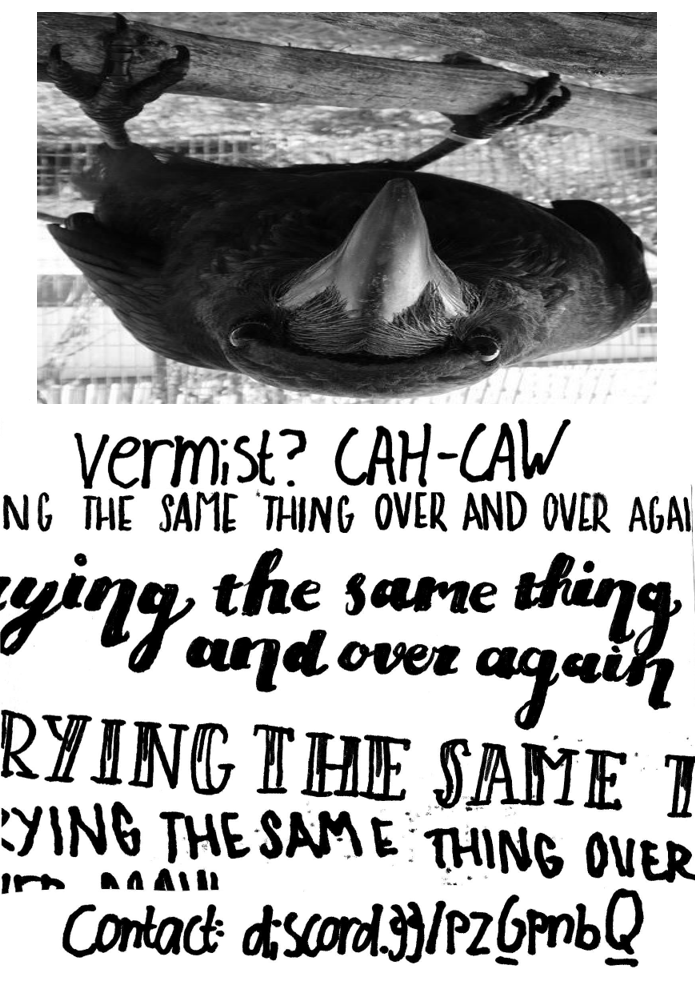 vermist? CAH-CAW
NG THE SAME THING OVER AND OVER AGAI
rying the same thing
and over again
RYING THE SAME T
RYING THE SAME THING OVER
Contact: discord.gg/pzGpnbQ